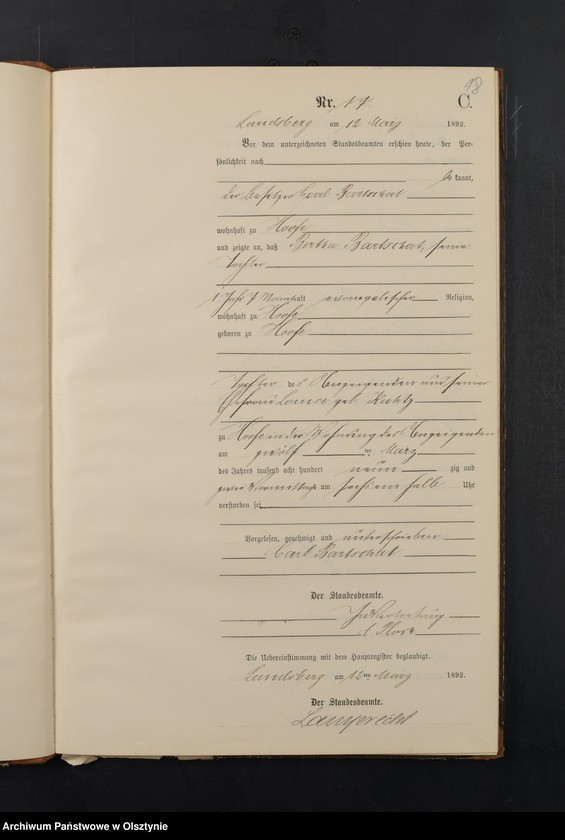 18
Nr. 17 C.
Landsberg am 12 März 1892.
Vor dem unterzeichneten Standesbeamten erschien heute, der Per-
sönlichkeit nach
kannt,
der Besitzer Carl Bartschat
wohnhaft zu Hoofe
und zeigte an, daß Bertha Bartschat, seine
Tochter
1 Jahr 7 Monat alt evangelischer Religion,
wohnhaft zu Hoofe
geboren zu Hoofe
Tochter des Anzeigenden und seiner
Ehefrau Louise geb.
zu Hoofe in der Wohnung des Anzeigenden
am zwölf ten März
des Jahres tausend acht hundert neun zig und
zwei Vormittags um sechs ein halb Uhr
verstorben sei
Vorgelesen, genehmigt und unterschrieben
Carl Bartschat
Der Standesbeamte.
Die Uebereinstimmung mit dem Hauptregister beglaubigt.
Landsberg am 12ten März 1892.
Der Standesbeamte.
Lamprecht
Archiwum Państwowe w Olsztynie